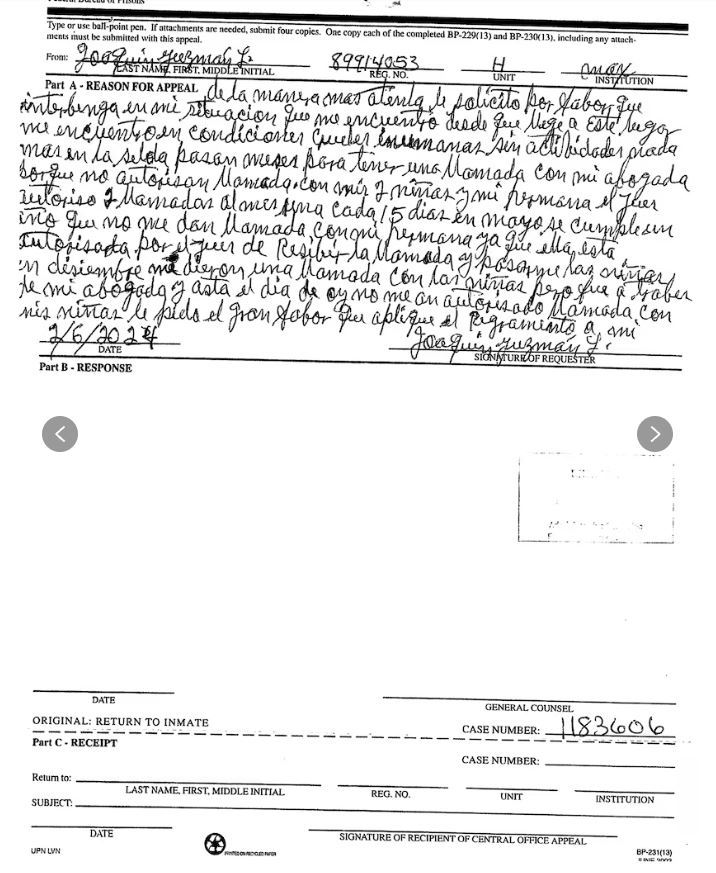 Type or use ball-point pen. If attachments are needed, submit four copies. One copy each of the completed BP-229(13) and BP-230(13), including any attach-
ments must be submitted with this appeal.
From: Joaquin Guzmán L. 89914053 H max
LAST NAME, FIRST, MIDDLE INITIAL REG. NO. UNIT INSTITUTION
Part A - REASON FOR APPEAL de la manera mas atenta le solicito por fabor que
interbenga en mi situacion que me encuentro desde que llege a este lugar
me encuentro en condiciones crueles inumanas, sin actibidades nada
mas en la selda pasan meses para tener una llamada con mi abogada
porque no autorisan llamada. con mis 2 niñas y mi hermana el juez
autoriso 2 llamadas al mes una cada 15 dias en mayo se cumple un
año que no me dan llamada con mi hermana ya que ella esta
autorisada por el juez de Resibir la llamada y pasarme las niñas
en disiembre me dieron una llamada con las niñas pero fue a traber
de mi abogada y asta el dia de oy no me an autorisado llamada con
mis niñas le pido el gran fabor que aplique el Riglamento a mi
2/6/2024 Joaquin Guzmán L.
DATE SIGNATURE OF REQUESTER
Part B - RESPONSE
DATE GENERAL COUNSEL
ORIGINAL: RETURN TO INMATE CASE NUMBER: 1183606
Part C - RECEIPT
CASE NUMBER:
Return to:
LAST NAME, FIRST, MIDDLE INITIAL REG. NO. UNIT INSTITUTION
SUBJECT:
DATE SIGNATURE OF RECIPIENT OF CENTRAL OFFICE APPEAL
UPN LVN PRINTED ON RECYCLED PAPER BP-231(13)
JUNE 2002